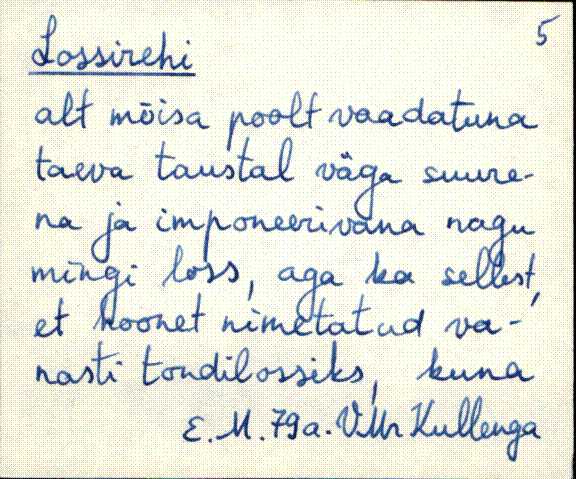 5
Lossirehi
alt mõisa poolt vaadatuna
taeva taustal väga suure-
na ja imponeerivana nagu
mingi loss, aga ka sellest,
et hoonet nimetatud va-
nasti tondilossiks, kuna
E.M. 79a. VMr Kullenga